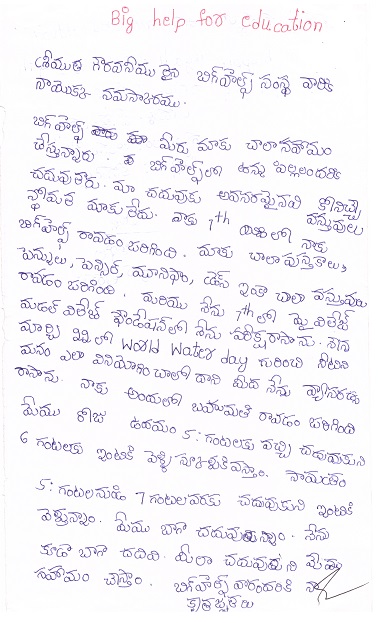 Big help for education
శ్రీయుత గౌరవనీయు లైన బిగ్‌హెల్ప్ సంస్థ వారికి
నాయొక్క నమస్కారము.
బిగ్‌హెల్ప్ మీరు మాకు చాలా సహాయం
చేస్తున్నారు. బిగ్‌హెల్ప్‌లో ఉన్న పిల్లలందరికి
చదువుతారు. మా చదువుకు అవసరమైనవి కొనిచ్చే
స్థోమత మాకు లేదు. నాకు 7th లో నాకు వస్తువులు
బిగ్‌హెల్ప్ రావడం జరిగింది. మాకు చాలా పుస్తకాలు,
పెన్నులు, పెన్సిల్, యూనిఫాం, డ్రెస్ ఇంకా చాలా వస్తువులు
రావడం జరిగింది. మరియు నేను 7th లో మై విలేజ్
మడల్ విలేజ్ ఫౌండేషన్‌లో నేను పరీక్ష రాసాను. నేను
మార్చి 22 లో World Water day గురించి నీటిని
మనం ఎలా వినియోగించాలో దాని మీద నేను వ్యాసరచన
రాసాను. నాకు అందులో బహుమతి రావడం జరిగింది
మేము రోజు ఉదయం 5: గంటలకు వచ్చి చదువుకుని
6 గంటలకు ఇంటికి వెళ్ళి స్కూలుకివస్తాం. సాయంత్రం
5: గంటలనుండి 7 గంటలవరకు చదువుకుని ఇంటికి
వెళ్తున్నాం. మేము బాగా చదువుతున్నాం. నేను
కూడా బాగా చదివి. మీలా చదువుకునే
సహాయం చేస్తాం. బిగ్‌హెల్ప్ వారందరికి నా
కృతజ్ఞతలు